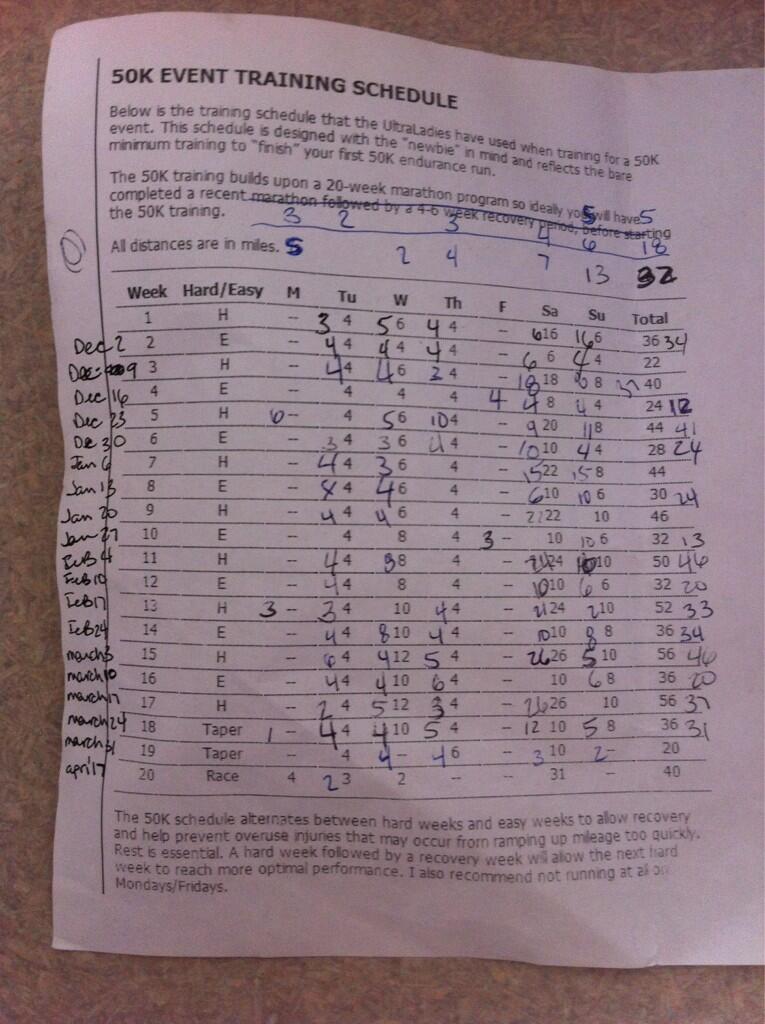 50K EVENT TRAINING SCHEDULE
Below is the training schedule that the UltraLadies have used when training for a 50K
event. This schedule is designed with the "newbie" in mind and reflects the bare
minimum training to "finish" your first 50K endurance run.
The 50K training builds upon a 20-week marathon program so ideally you will have 5
completed a recent marathon followed by a 4-6 week recovery period, before starting
the 50K training. 3 2 3 4 6 18
All distances are in miles. 5 2 4 7 13 32
Week Hard/Easy M Tu W Th F Sa Su Total
1 H -- 3 4 5 6 4 4 -- 6 16 16 6 36 34
Dec 2 2 E -- 4 4 4 4 4 4 -- 6 6 4 4 22
9 3 H -- 4 4 4 6 2 4 -- 18 18 8 8 40
Dec 16 4 E -- 4 4 4 4 4 8 4 4 24 12
Dec 23 5 H 6 -- 4 5 6 10 4 -- 9 20 11 8 44 41
De 30 6 E -- 3 4 3 6 4 4 -- 10 10 4 4 28 24
Jan 6 7 H -- 4 4 3 6 4 -- 15 22 15 8 44
Jan 13 8 E -- 4 4 6 4 -- 6 10 10 6 30 24
Jan 20 9 H -- 4 4 4 6 4 -- 22 10 46
Jan 27 10 E -- 4 8 4 3 -- 10 10 6 32 13
Feb 4 11 H -- 4 4 8 8 4 -- 24 24 10 10 50 46
Feb 10 12 E -- 4 4 8 4 -- 10 10 6 6 32 20
Feb 17 13 H 3 -- 3 4 10 4 4 -- 21 24 2 10 52 33
Feb 24 14 E -- 4 4 8 10 4 4 -- 10 10 8 8 36 34
march 3 15 H -- 6 4 4 12 5 4 -- 26 26 5 10 56 46
march 10 16 E -- 4 4 4 10 6 4 -- 10 6 8 36 20
march 17 17 H -- 2 4 5 12 3 4 -- 26 26 10 56 37
march 24 18 Taper 1 -- 4 4 4 10 5 4 -- 12 10 5 8 36 31
march 31 19 Taper -- 4 4 -- 4 6 -- 3 10 2 -- 20
april 7 20 Race 4 2 3 2 -- -- 31 -- 40
The 50K schedule alternates between hard weeks and easy weeks to allow recovery
and help prevent overuse injuries that may occur from ramping up mileage too quickly.
Rest is essential. A hard week followed by a recovery week will allow the next hard
week to reach more optimal performance. I also recommend not running at all on
Mondays/Fridays.